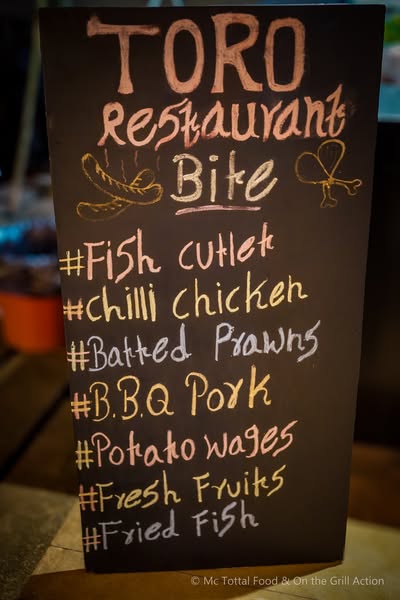 TORO
Restaurant
Bite
#Fish cutlet
#Chilli chicken
#Batted Prawns
#B.B.Q Pork
#Potato wages
#Fresh Fruits
#Fried Fish
© Mc Tottal Food & On the Grill Action